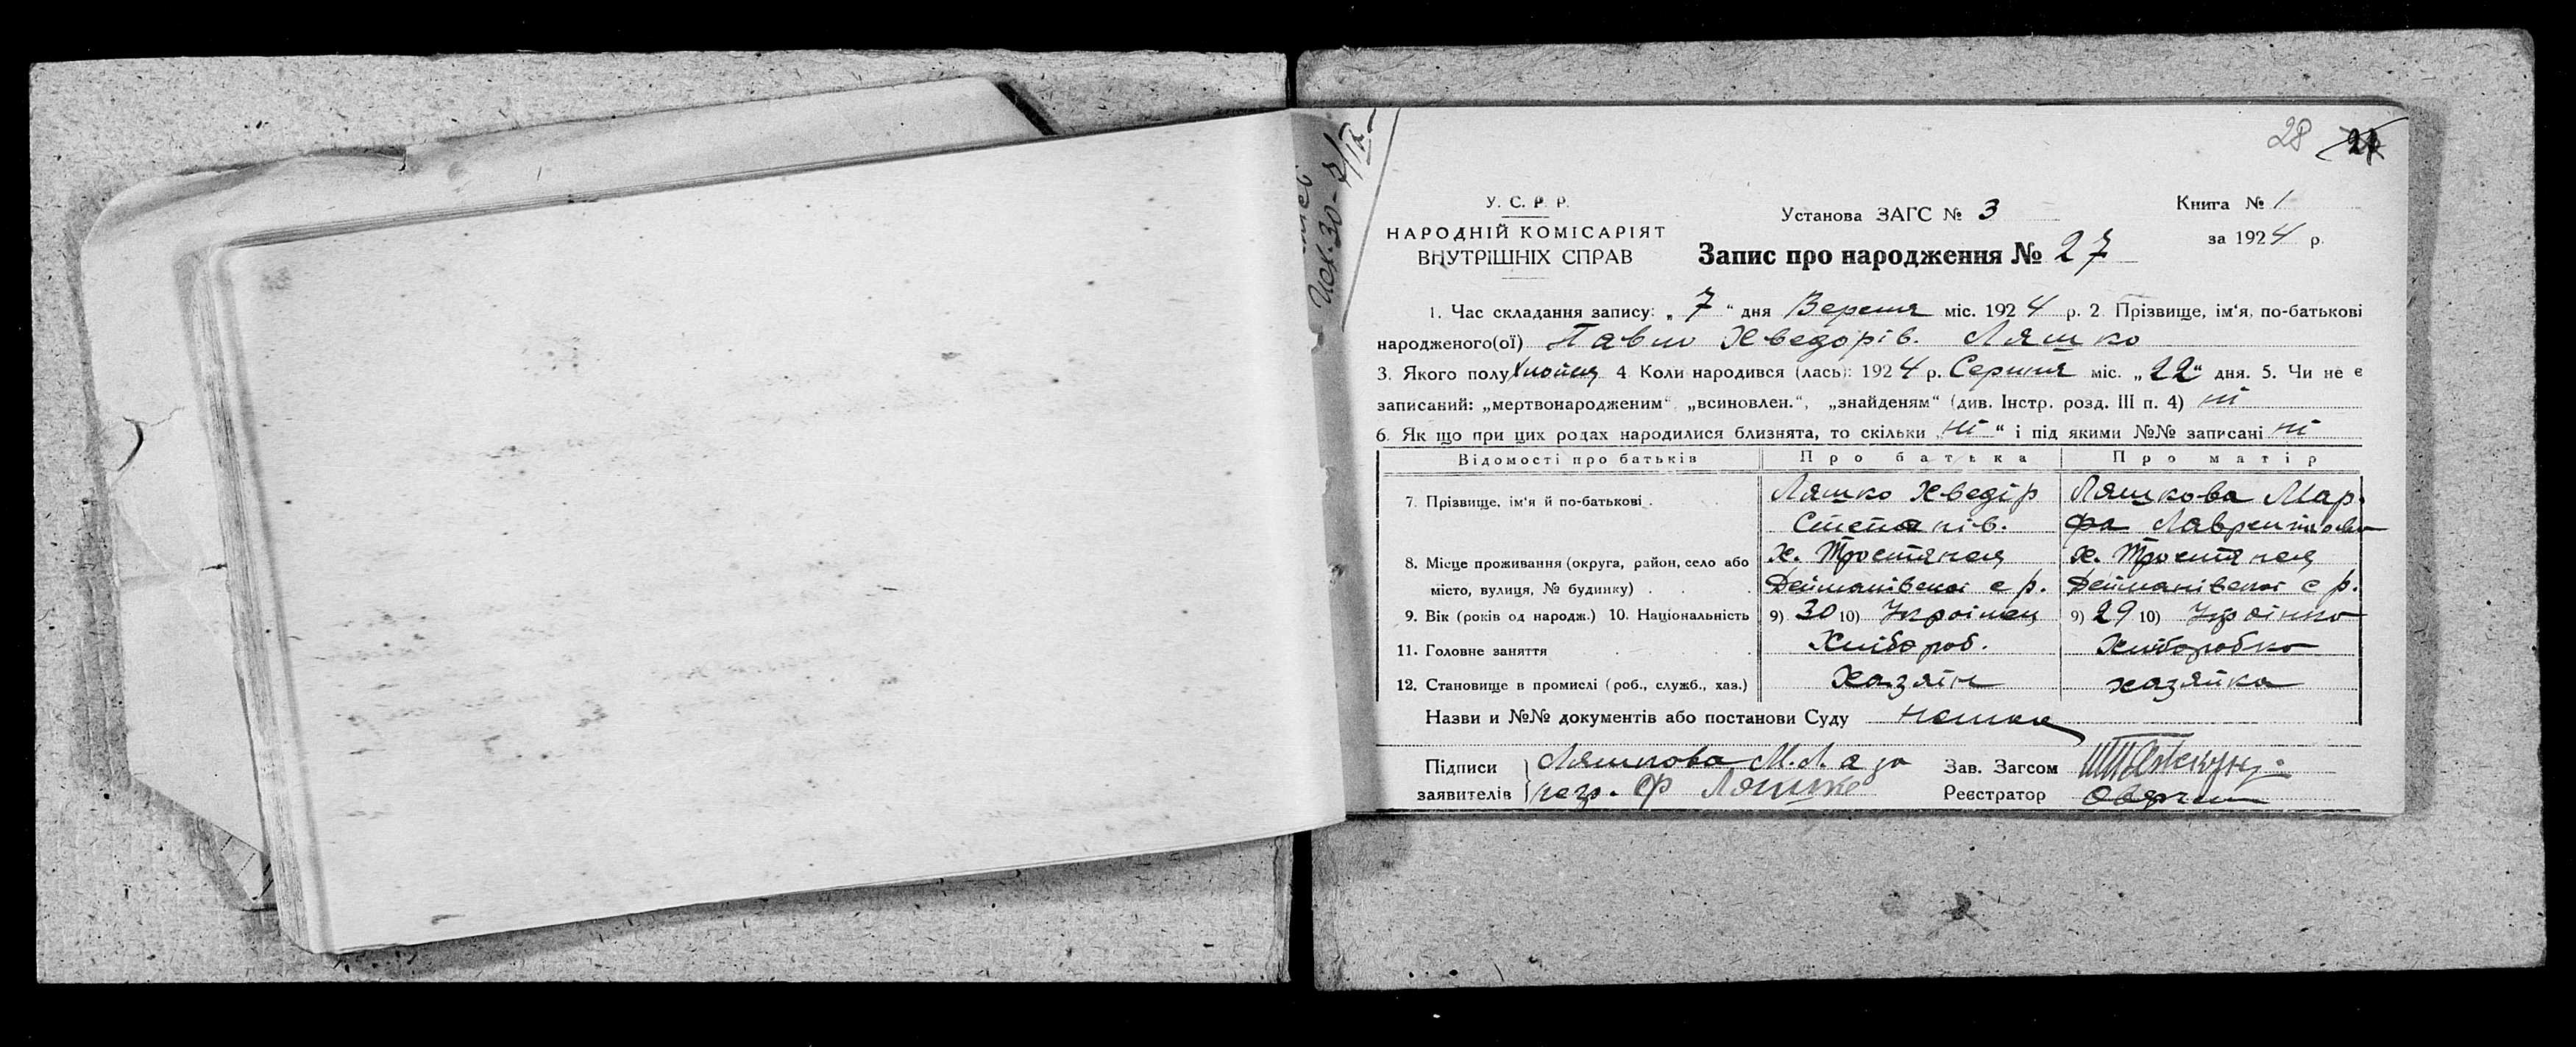 28 27
У. С. Р. Р.
НАРОДНІЙ КОМІСАРІЯТ
ВНУТРІШНІХ СПРАВ
Установа ЗАГС № 3
Книга № 1
за 1924 р.
Запис про народження № 27
1. Час складання запису: „ 7 “ дня Вересня міс. 1924 р. 2. Прізвище, ім'я, по-батькові
народженого(ої) Павло Хведорів. Ляшко
3. Якого полу Хлопець 4. Коли народився (лась): 1924 р. Серпня міс. „22“ дня. 5. Чи не є
записаний: „мертвонародженим“, „всиновлен.“, „знайденям“ (див. Інстр. розд. III п. 4) ні
6. Як що при цих родах народилися близнята, то скільки „ні“ і під якими №№ записані ні
Відомості про батьків Про батька Про матір
7. Прізвище, ім'я й по-батькові . Ляшко Хведір Ляшкова Мар-
Степанів. фа Лаврентіевна
8. Місце проживання (округа, район, село або х. Тростянец х. Тростянец
місто, вулиця, № будинку) . . . Дейманівської с р. Дейманівської с р.
9. Вік (років од народж.) 10. Національність 9) 30 10) Украінец 9) 29 10) Украінка
11. Головне заняття Хлібороб. Хліборобка
12. Становище в промислі (роб., служб., хаз.) Хазяін хазяйка
Назви и №№ документів або постанови Суду немае
Підписи Ляшкова М. Л. а за Зав. Загсом
заявителів негр. Ф Ляшко Реєстратор